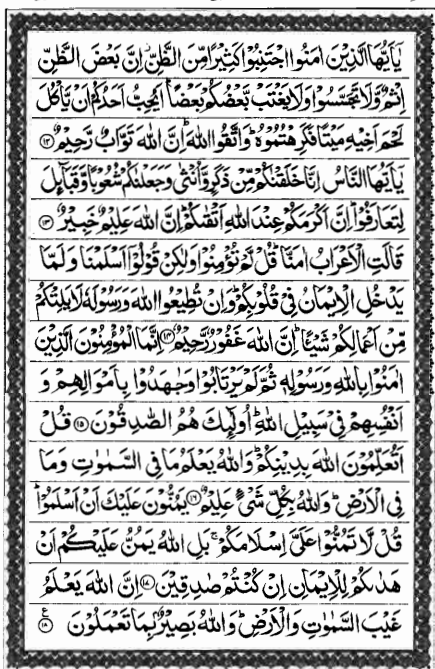 يٰۤاَيُّهَا الَّذِيۡنَ اٰمَنُوا اجۡتَنِبُوۡا كَثِيۡرًا مِّنَ الظَّنِّ اِنَّ بَعۡضَ الظَّنِّ
اِثۡمٌ وَّلَا تَجَسَّسُوۡا وَلَا يَغۡتَبْ بَّعۡضُكُمۡ بَعۡضًا ؕ اَيُحِبُّ اَحَدُكُمۡ اَنۡ يَّاۡكُلَ
لَحۡمَ اَخِيۡهِ مَيۡتًا فَكَرِهۡتُمُوۡهُ ؕ وَاتَّقُوا اللّٰهَ ؕ اِنَّ اللّٰهَ تَوَّابٌ رَّحِيۡمٌ ۝۱۲
يٰۤاَيُّهَا النَّاسُ اِنَّا خَلَقۡنٰكُمۡ مِّنۡ ذَكَرٍ وَّاُنۡثٰى وَجَعَلۡنٰكُمۡ شُعُوۡبًا وَّقَبَآٮِٕلَ
لِتَعَارَفُوۡا ؕ اِنَّ اَكۡرَمَكُمۡ عِنۡدَ اللّٰهِ اَتۡقٰٮكُمۡ ؕ اِنَّ اللّٰهَ عَلِيۡمٌ خَبِيۡرٌ ۝۱۳
قَالَتِ الۡاَعۡرَابُ اٰمَنَّا ؕ قُلْ لَّمۡ تُؤۡمِنُوۡا وَلٰكِنۡ قُوۡلُوۡۤا اَسۡلَمۡنَا وَلَمَّا
يَدۡخُلِ الۡاِيۡمَانُ فِىۡ قُلُوۡبِكُمۡ ؕ وَاِنۡ تُطِيۡعُوا اللّٰهَ وَرَسُوۡلَهٗ لَا يَلِتۡكُمۡ
مِّنۡ اَعۡمَالِكُمۡ شَيۡـًٔا ؕ اِنَّ اللّٰهَ غَفُوۡرٌ رَّحِيۡمٌ ۝۱۴ اِنَّمَا الۡمُؤۡمِنُوۡنَ الَّذِيۡنَ
اٰمَنُوۡا بِاللّٰهِ وَرَسُوۡلِهٖ ثُمَّ لَمۡ يَرۡتَابُوۡا وَجَاهَدُوۡا بِاَمۡوَالِهِمۡ وَ
اَنۡفُسِهِمۡ فِىۡ سَبِيۡلِ اللّٰهِ ؕ اُولٰٓٮِٕكَ هُمُ الصّٰدِقُوۡنَ ۝۱۵ قُلۡ
اَتُعَلِّمُوۡنَ اللّٰهَ بِدِيۡنِكُمۡ ؕ وَاللّٰهُ يَعۡلَمُ مَا فِى السَّمٰوٰتِ وَمَا
فِى الۡاَرۡضِ ؕ وَاللّٰهُ بِكُلِّ شَىۡءٍ عَلِيۡمٌ ۝۱۶ يَمُنُّوۡنَ عَلَيۡكَ اَنۡ اَسۡلَمُوۡا ؕ
قُلْ لَّا تَمُنُّوۡا عَلَىَّ اِسۡلَامَكُمۡ ۚ بَلِ اللّٰهُ يَمُنُّ عَلَيۡكُمۡ اَنۡ
هَدٰٮكُمۡ لِلۡاِيۡمَانِ اِنۡ كُنۡتُمۡ صٰدِقِيۡنَ ۝۱۷ اِنَّ اللّٰهَ يَعۡلَمُ
غَيۡبَ السَّمٰوٰتِ وَالۡاَرۡضِ ؕ وَاللّٰهُ بَصِيۡرٌۢ بِمَا تَعۡمَلُوۡنَ ۝۱۸